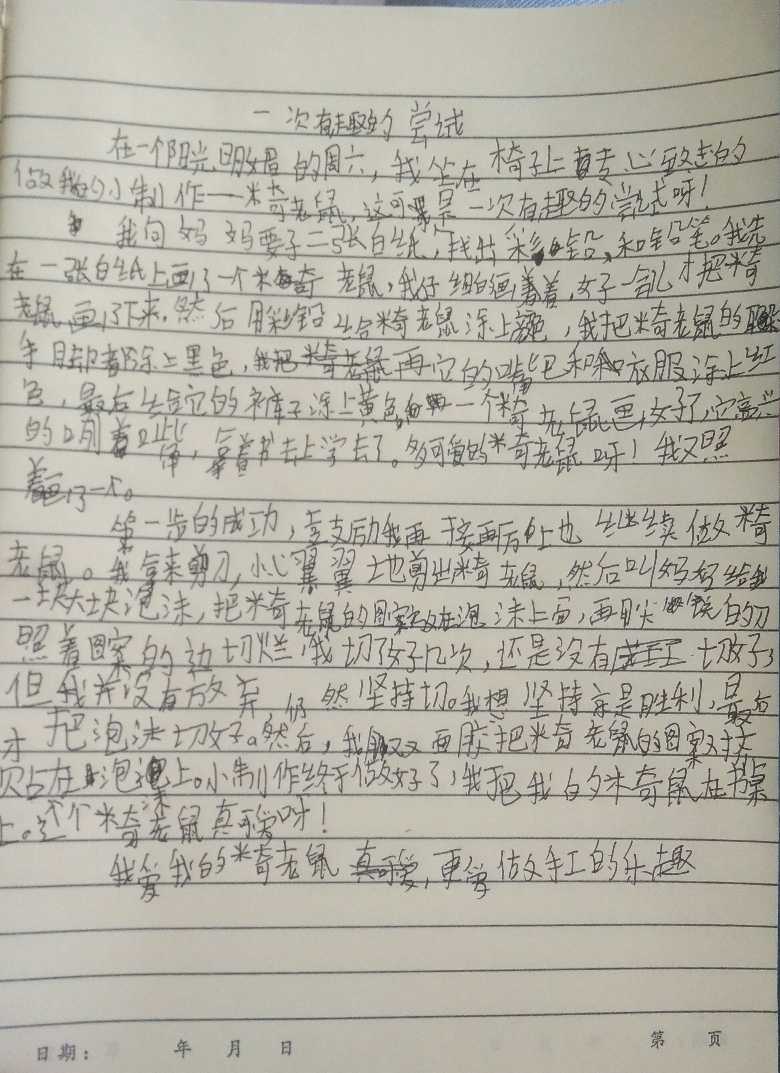 一次有趣的尝试
在一个阳光明媚的周六，我坐在椅子上专心致志的
做我的小制作——米奇老鼠，这可是一次有趣的尝试呀！
我向妈妈要了二张白纸，找出彩铅和铅笔。我先
在一张白纸上画了一个米奇老鼠，我仔细的画着着，好一会儿才把米奇
老鼠画了下来。然后用彩铅给米奇老鼠涂上颜色，我把米奇老鼠的
手脚都涂上黑色，我把米奇老鼠再它的嘴巴和衣服涂上红
色，最后给它的裤子涂上黄色，一个米奇老鼠画好了，它高兴
的叼着，拿着书去上学去了。多可爱的米奇老鼠呀！我又照
着画了一个。
第一步的成功，鼓励我再接再厉上也继续做米奇
老鼠。我拿来剪刀，小心翼翼地剪出米奇老鼠，然后叫妈妈给我
一块大块泡沫，把米奇老鼠的图案放在泡沫上面，再用尖的刀
照着图案的边切烂，我切了好几次，还是没有切好，
但我并没有放弃，仍然坚持切。我想坚持就是胜利，最后
才把泡沫切好。然后，我又用胶把米奇老鼠的图案
贴在泡沫上。小制作终于做好了，我把我的米奇鼠在书桌
上。这个米奇老鼠真可爱呀！
我爱我的米奇老鼠，更爱做手工的乐趣
日期： 年 月 日 第 页